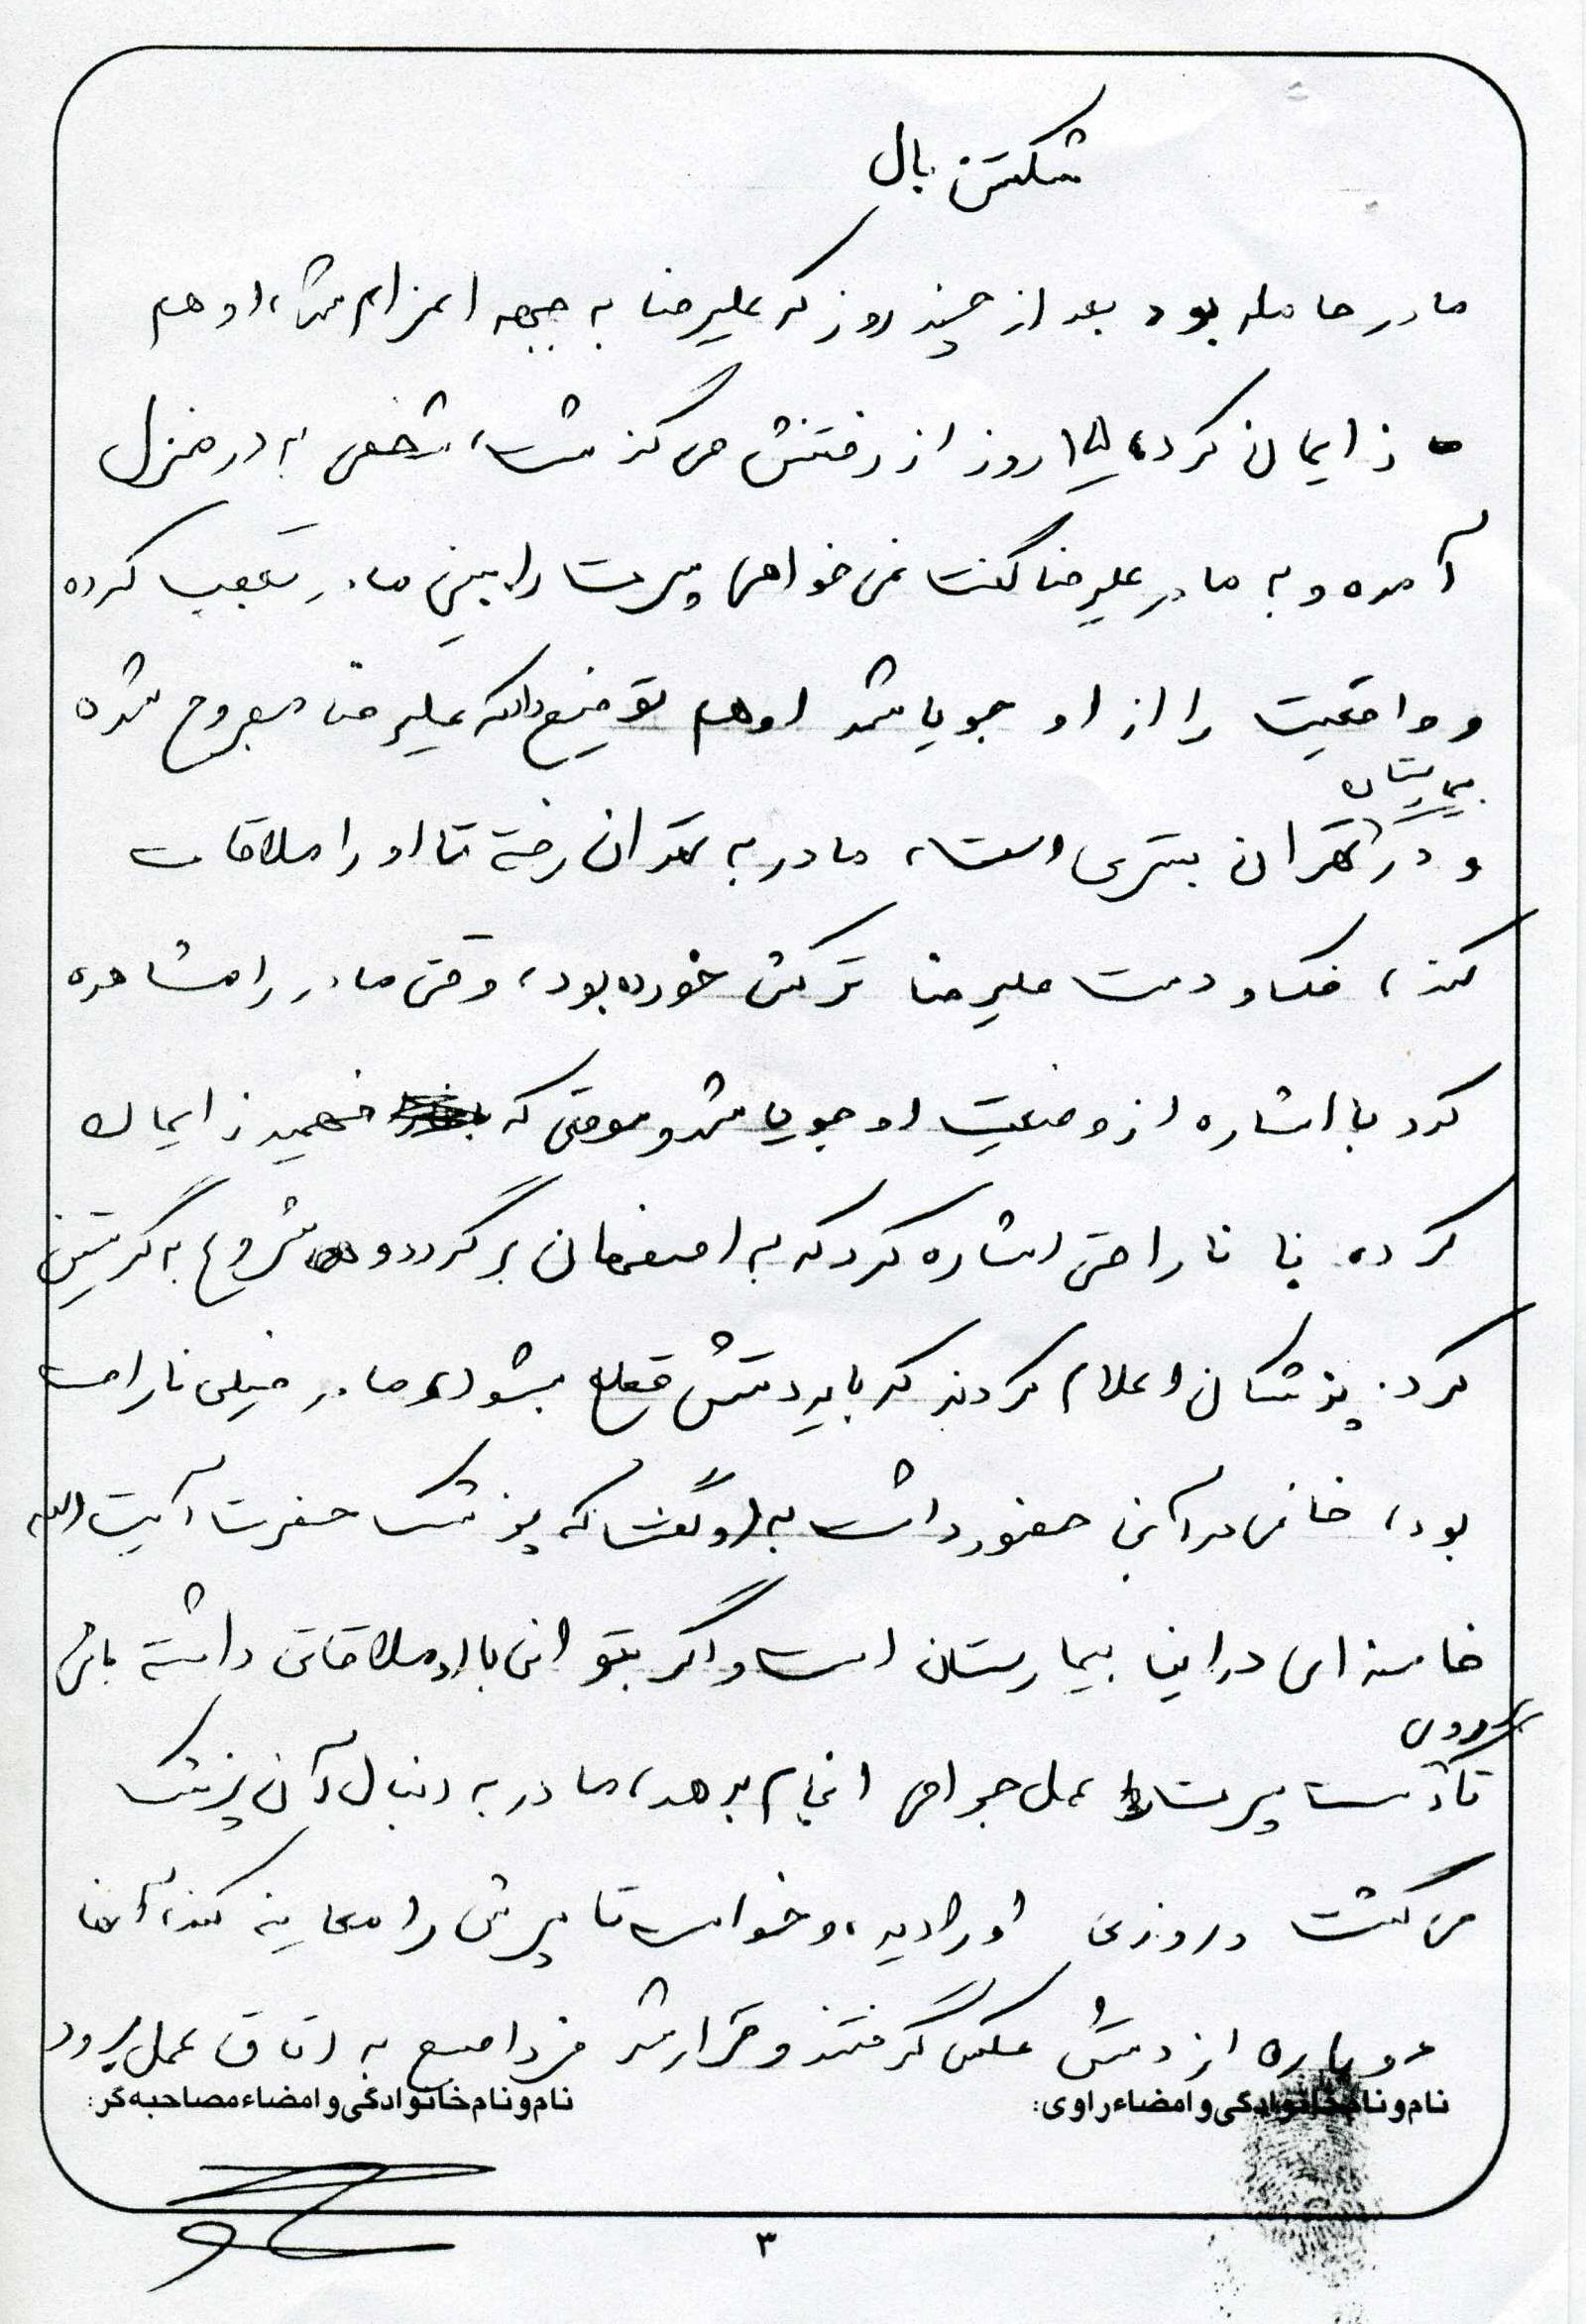 شکستن بال
مادر حامله بود بعد از چند روز که علیرضا به جبهه اعزام شد، او هم
زایمان کرد، ۱۵ روز از رفتنش می گذشت، شخصی به در منزل
آمده و به مادر علیرضا گفت نمی خواهی پسرت را ببینی مادر تعجب کرده
و واقعیت را از او جویا شد او هم توضیح داد که علیرضا مجروح شده
بیمارستان
و در تهران بستری است، مادر به تهران رفته تا او را ملاقات
کند، فک و دست علیرضا ترکش خورده بود، وقتی مادر را مشاهده
کرد با اشاره از وضعیت او جویا شد و موقعی که فهمید زایمان
کرده با ناراحتی اشاره کرد که به اصفهان برگردد و شروع به گریستن
کرد. پزشکان اعلام کردند که باید دستش قطع بشود، مادر خیلی ناراحت
بود، خانمی در آنجا حضور داشت به او گفت که پزشک حضرت آیت الله
خامنه ای در این بیمارستان است و اگر بتوانی با او ملاقاتی داشته باش
بر روی
تا دست پسرت عمل جراحی انجام بدهد، مادر به دنبال آن پزشک
می گشت و روزی او را دید، و خواست تا پسرش را معاینه کند، آنها
دوباره از دستش عکس گرفتند و قرار شد فردا صبح به اتاق عمل برود
نام و نام خانوادگی و امضاء راوی:
نام و نام خانوادگی و امضاء مصاحبه گر:
۳